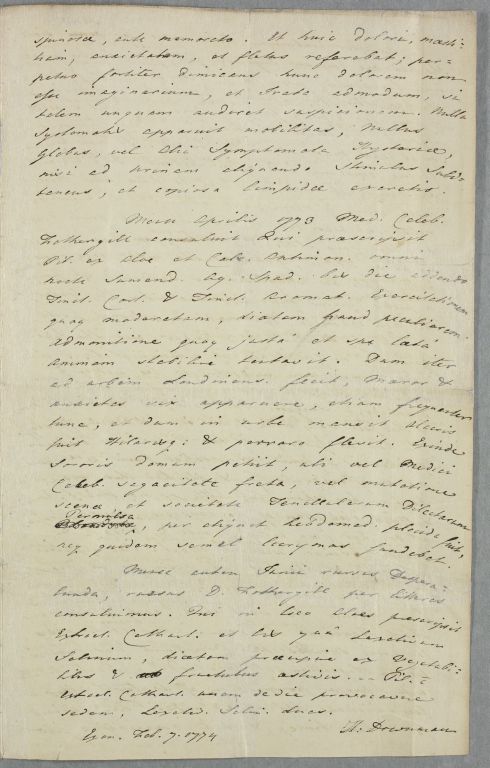 spinosæ, ante memorato. Et huic dolori, mœsti-
tiam, anxietatem, et fletus referebat; per-
petuo fortiter dimicans hunc dolorem non
esse imaginarium, et irata admodum, si
talem unquam audiret suspicionem. Nulla
Systematis apparuit mobilitas, nullus
Globus, vel alia Symptomata Hysteriæ,
nisi ad urinam aliquando Stimulus Subi-
taneus, et copiosa limpidæ excretio.
Mense Aprilis 1773 Med. Celeb.
Fothergill consuluit Qui præscripsit
Pil. ex Aloe et Calc. Antimon. omni
nocte Sumend. Aq. Spad. bis die addendo
Tinct. Cort. & Tinct. Aromat. Exercitationem
quoq moderatam, diætam haud
admonitione quoq justâ et spe lætâ
animum stabilire tentavit. Dum iter
ad urbem Londinens. fecit, Mæror &
anxietas vix apparuere, etiam frequenter
lune, et dum in urbe mansit
fuit Hilarisq: & perraro flevit. Exinde
Sororis domum petiit, ubi vel Medici
Celeb. sagacitate freta, vel mutatione
scenæ et societate Dilectarum
Permulsa
per aliquot hebdomad. placida fuit,
neq quidem semel lacrymas fundebat.
Mense autem Junii rursus Despera-
bunda, rursus D. Fothergill per litteras
consuluimus. Qui in loco Aloes præscripsit
Extract. Cathart. et bis
Selinum, diætam præcipue ex Vegetabi-
libus & fructubus æstivis. Pil.
Extract. Cathart. unam de die provocavere
sedem,
Exon. Feb. 7. 1774
H: Downman